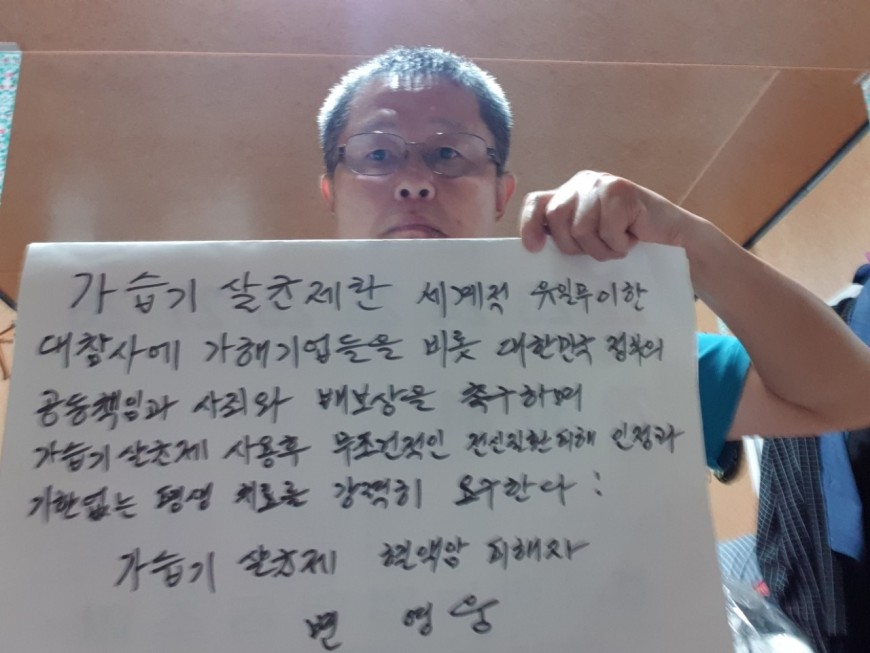 가습기 살균제란 세계적 유일무이한
대참사에 가해기업들을 비롯 대한민국 정부의
공동책임과 사죄와 배보상을 촉구하며
가습기 살균제 사용후 무조건적인 전신질환 피해 인정과
기한없는 평생 치료를 강력히 요구한다:
가습기 살균제 혈액암 피해자
변 영 웅